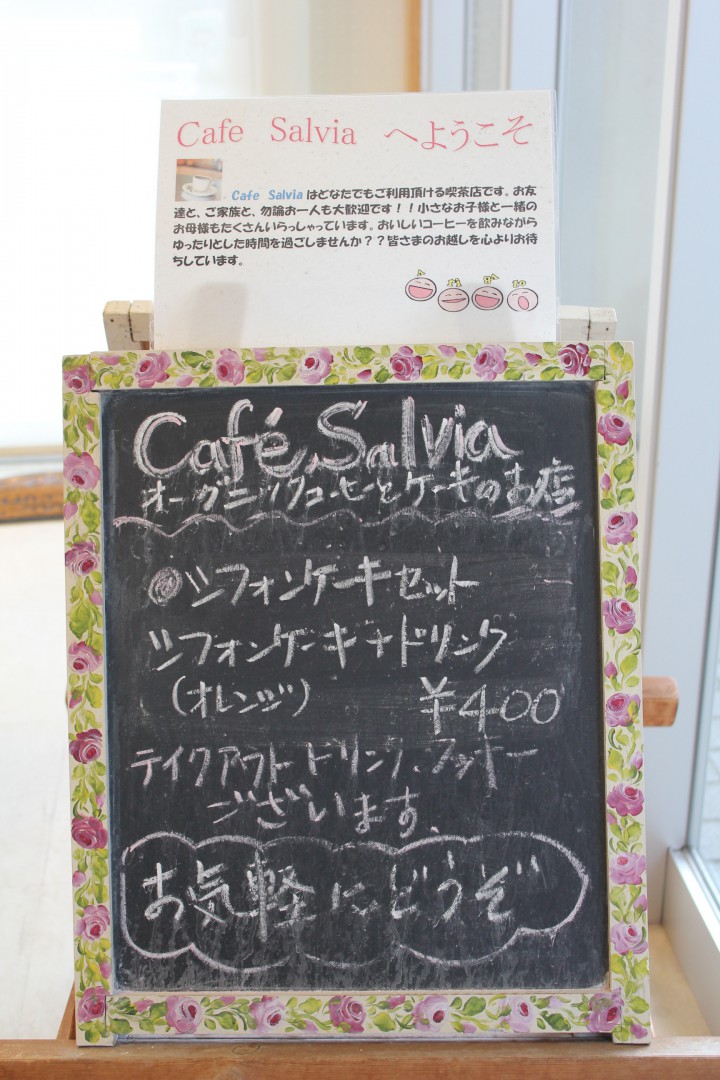 Cafe Salvia へようこそ
Cafe Salvia はどなたでもご利用頂ける喫茶店です。お友
達と、ご家族と、勿論お一人も大歓迎です！！小さなお子様と一緒の
お母様もたくさんいらっしゃっています。おいしいコーヒーを飲みながら
ゆったりとした時間を過ごしませんか？？皆さまのお越しを心よりお待
ちしています。
Café Salvia
オーガニックコーヒーとケーキのお店
◎シフォンケーキセット
シフォンケーキ+ドリンク
(オレンジ) ¥400
テイクアウトドリンク、クッキー
ございます。
お気軽にどうぞ